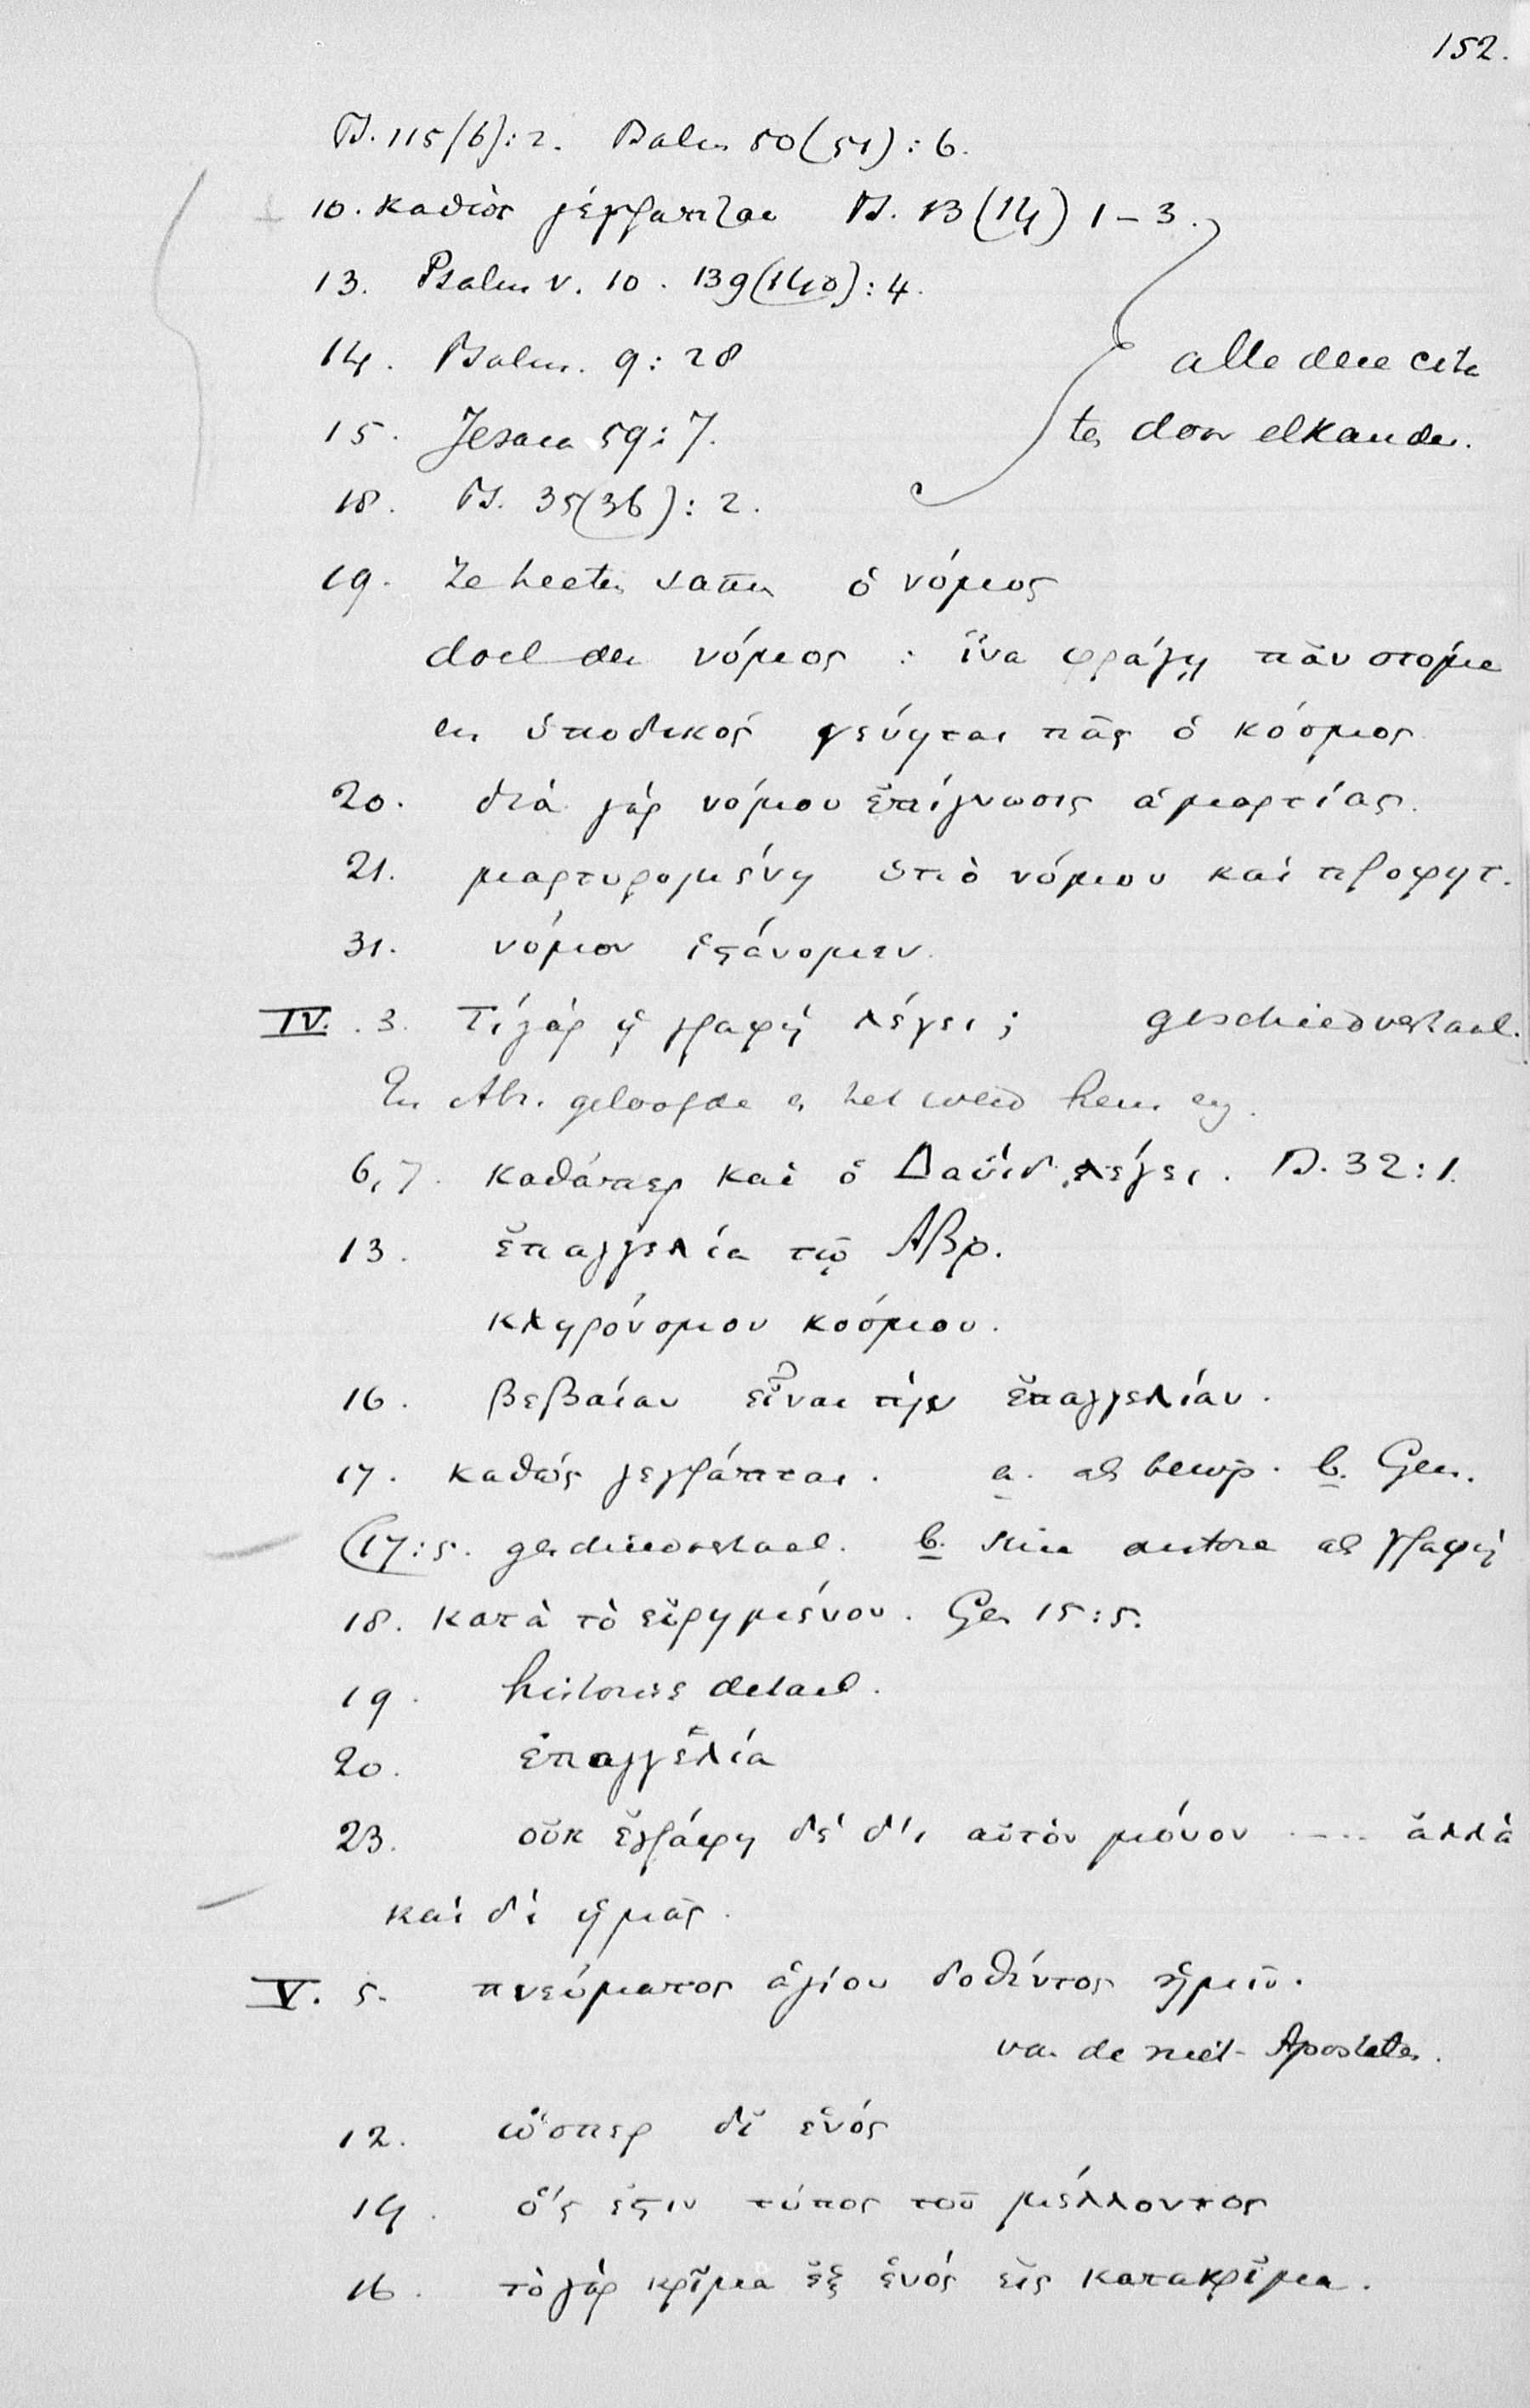 152.
Ps. 115(6):2. Psalm 50(51):6.
10. καθὼς γέγραπται Ps. 13(14) 1-3.
13. Psalm V. 10. 139(140):4.
14. Psalm. 9:28
15. Jesaia 59:7.
18. Ps. 35(36):2.
alle deze cita
ten door elkander.
19. ze heeten samen ὁ νόμος
doel der νόμος : ἵνα φράγῃ πᾶν στόμα
en ὑποδικός γένηται πᾶς ὁ κόσμος
20. διὰ γάρ νόμου ἐπίγνωσις ἁμαρτίας.
21. μαρτυρομένη ὑπὸ νόμου καὶ προφητ.
31. νόμον ἱστάνομεν.
IV. 3. Τί γάρ ἡ γραφή λέγει; geschiedverhaal.
En Abr. geloofde en het werd hem enz.
6,7. καθάπερ καὶ ὁ Δαϋίδ λέγει. Ps. 32:1.
13. ἐπαγγελία τῷ Αβρ.
κληρόνομον κόσμου.
16. βεβαίαν εἶναι τήν ἐπαγγελίαν.
17. καθώς γεγράπται. a. als bewijs. b. Gen.
17:5. geschiedverhaal. b. sine autore als γραφή
18. κατὰ τὸ εἰρημένον. Gen 15:5.
19. historisch detail.
20. ἐπαγγελία
23. οὐκ ἐγράφη δέ δί αὐτὸν μόνον .... ἀλλά
καί δί ἡμᾶς.
V. 5. πνεύματος ἁγίου δοθέντος ἡμῖν.
van de niet-Apostelen.
12. ὥσπερ δἰ ἑνός
14. ὅς ἐστιν τύπος τοῦ μέλλοντος
16. τὸ γάρ κρῖμα ἐξ ἑνός εἰς κατακρῖμα.